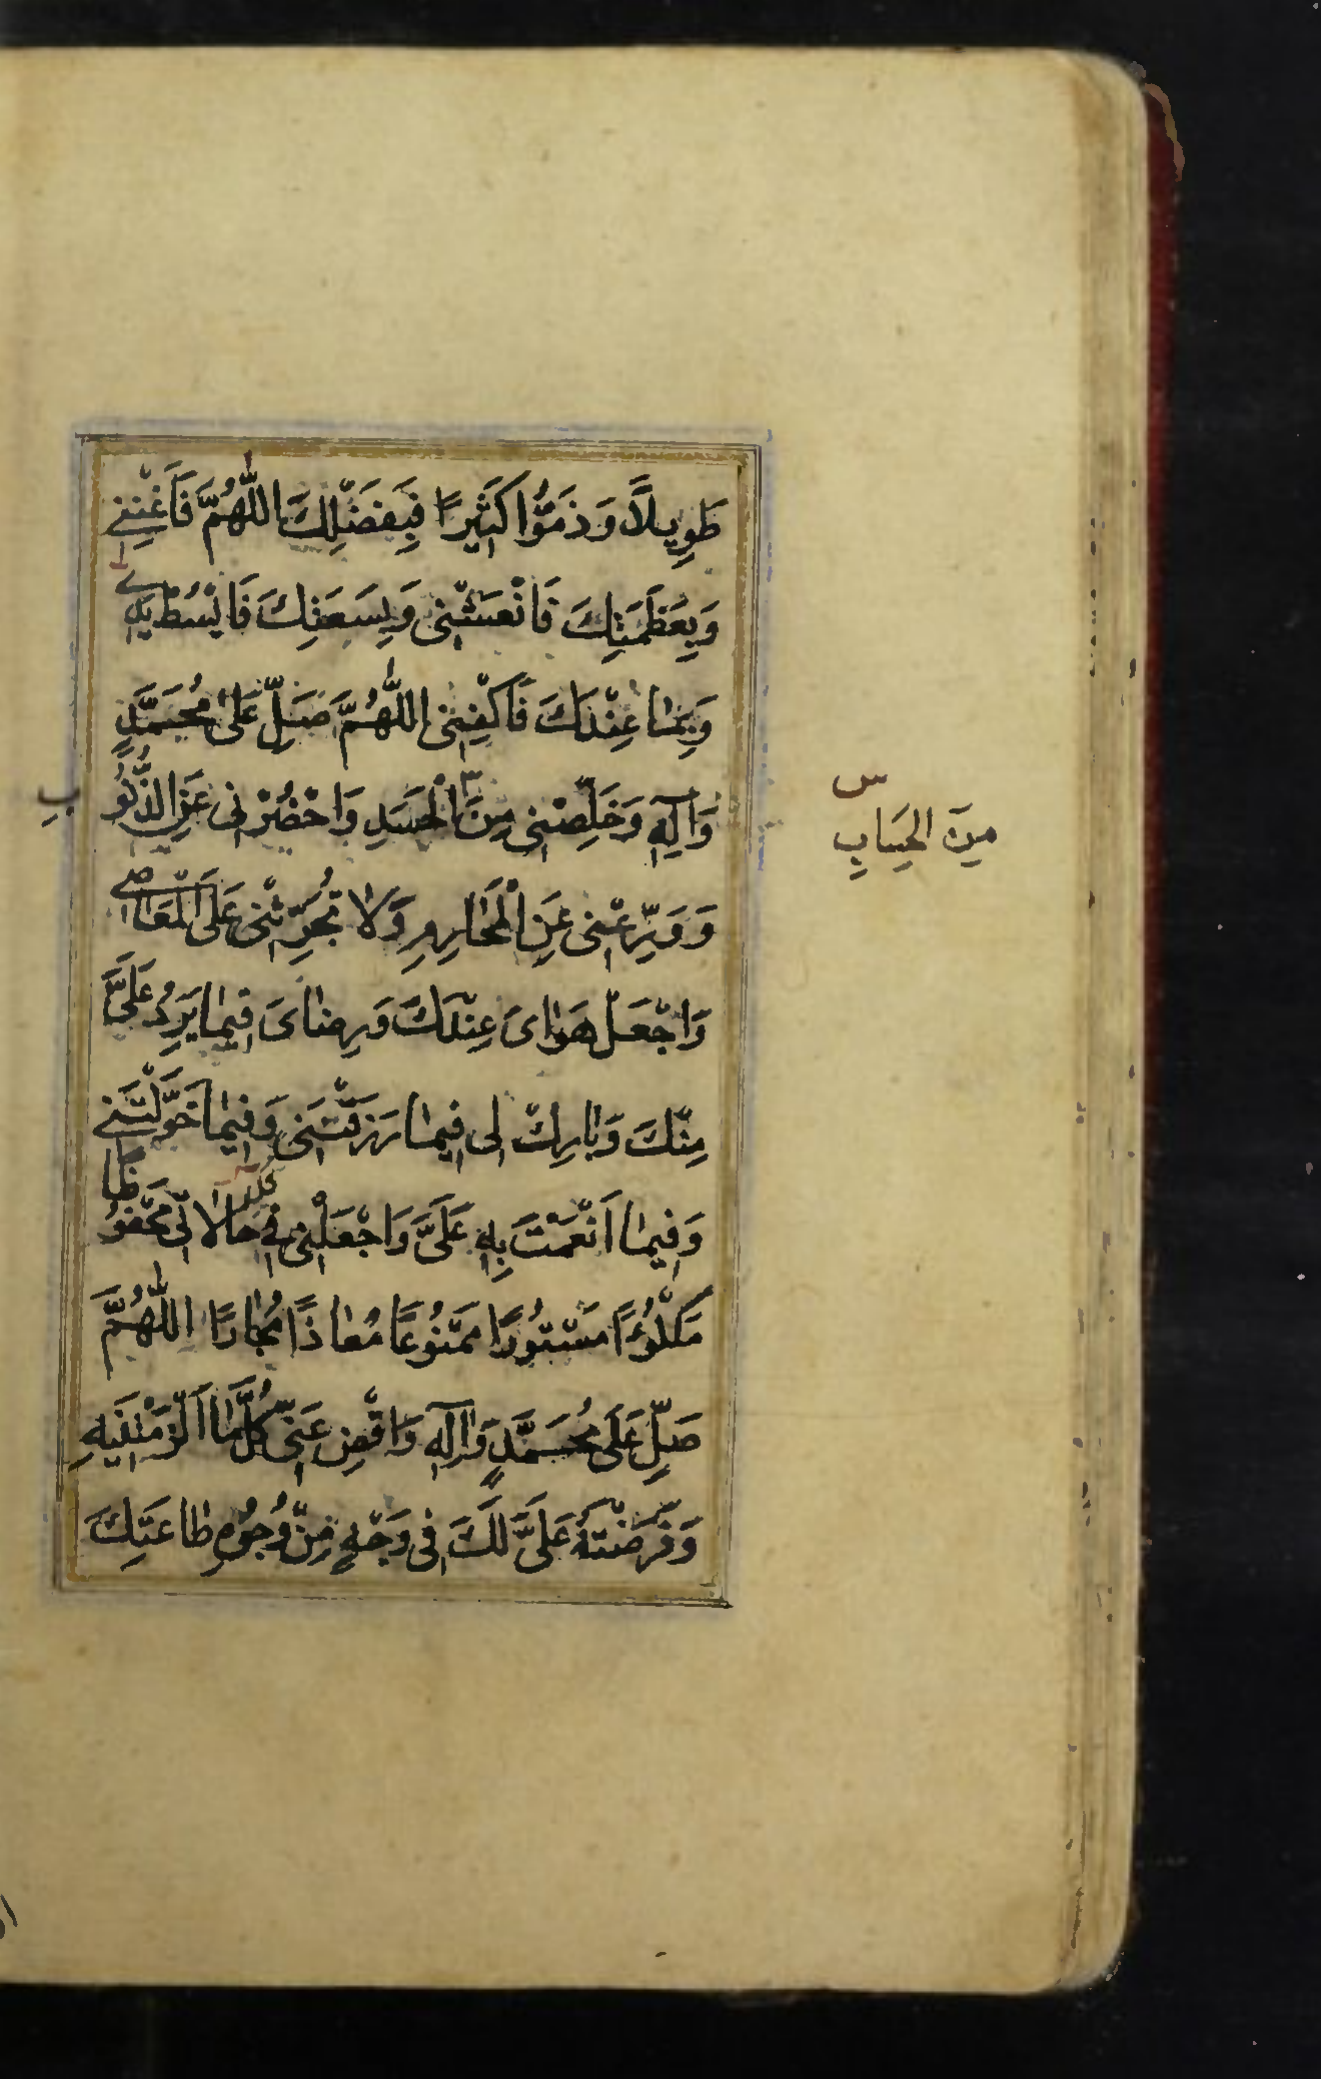 طَوِيلاً وَذَمُّوا كَثِيرًا فَبِفَضْلِكَ اللّٰهُمَّ فَاَغْنِنِي
وَبِعَظَمَتِكَ فَانْعَشْنِى وَبِسَعَتِكَ فَابْسُطْ يَدِي
وَبِمٰا عِنْدَكَ فَاكْفِنِى اللّٰهُمَّ صَلِّ عَلىٰ مُحَمَّدٍ
وَآلِهِ وَخَلِّصْنِى مِنَ الْحَسَدِ وَاحْصُرْنِى عَنِ الذُّنُوبِ
س
مِنَ الحِسَابِ
وَوَرِّعْنِى عَنِ الْمَحٰارِمِ وَلاٰ تُجَرِّئْنِى عَلَى الْمَعَاصِي
وَاجْعَلْ هَوٰاىَ عِنْدَكَ وَرِضٰاىَ فِيمٰا يَرِدُ عَلَىَّ
مِنْكَ وَبٰارِكْ لِى فِيمٰا رَزَقْتَنِى وَفِيمٰا خَوَّلْتَنِي
وَفِيمٰا اَنْعَمْتَ بِهِ عَلَىَّ وَاجْعَلْنِى فِي حَالاٰتِى مَحْفُوظًا
مَكْلُوءًا مَسْتُورًا مَمْنُوعًا مُعٰاذًا مُجٰارًا اللّٰهُمَّ
صَلِّ عَلَى مُحَمَّدٍ وَآلِهِ وَاقْضِ عَنِّى كُلَّمٰا اَلْزَمْتَنِيهِ
وَفَرَضْتَهُ عَلَىَّ لَكَ فِى وَجْهٍ مِنْ وُجُوهِ طٰاعَتِكَ